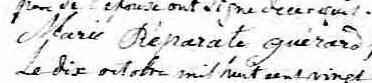 père de l'épouse ont signé de ce requis.
Marie Réparate guérard
Le dix octobre mil huit cent vingt